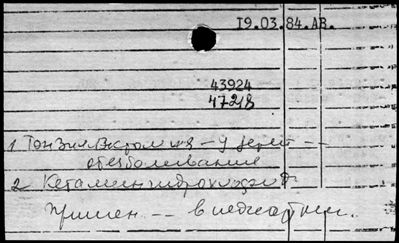 19.03.84.АВ.
43924
47218
1 Тонзиллэктомия – у детей --
обезболивание
2 Кетамин гидрохлорид
примен -- в педиатрии.